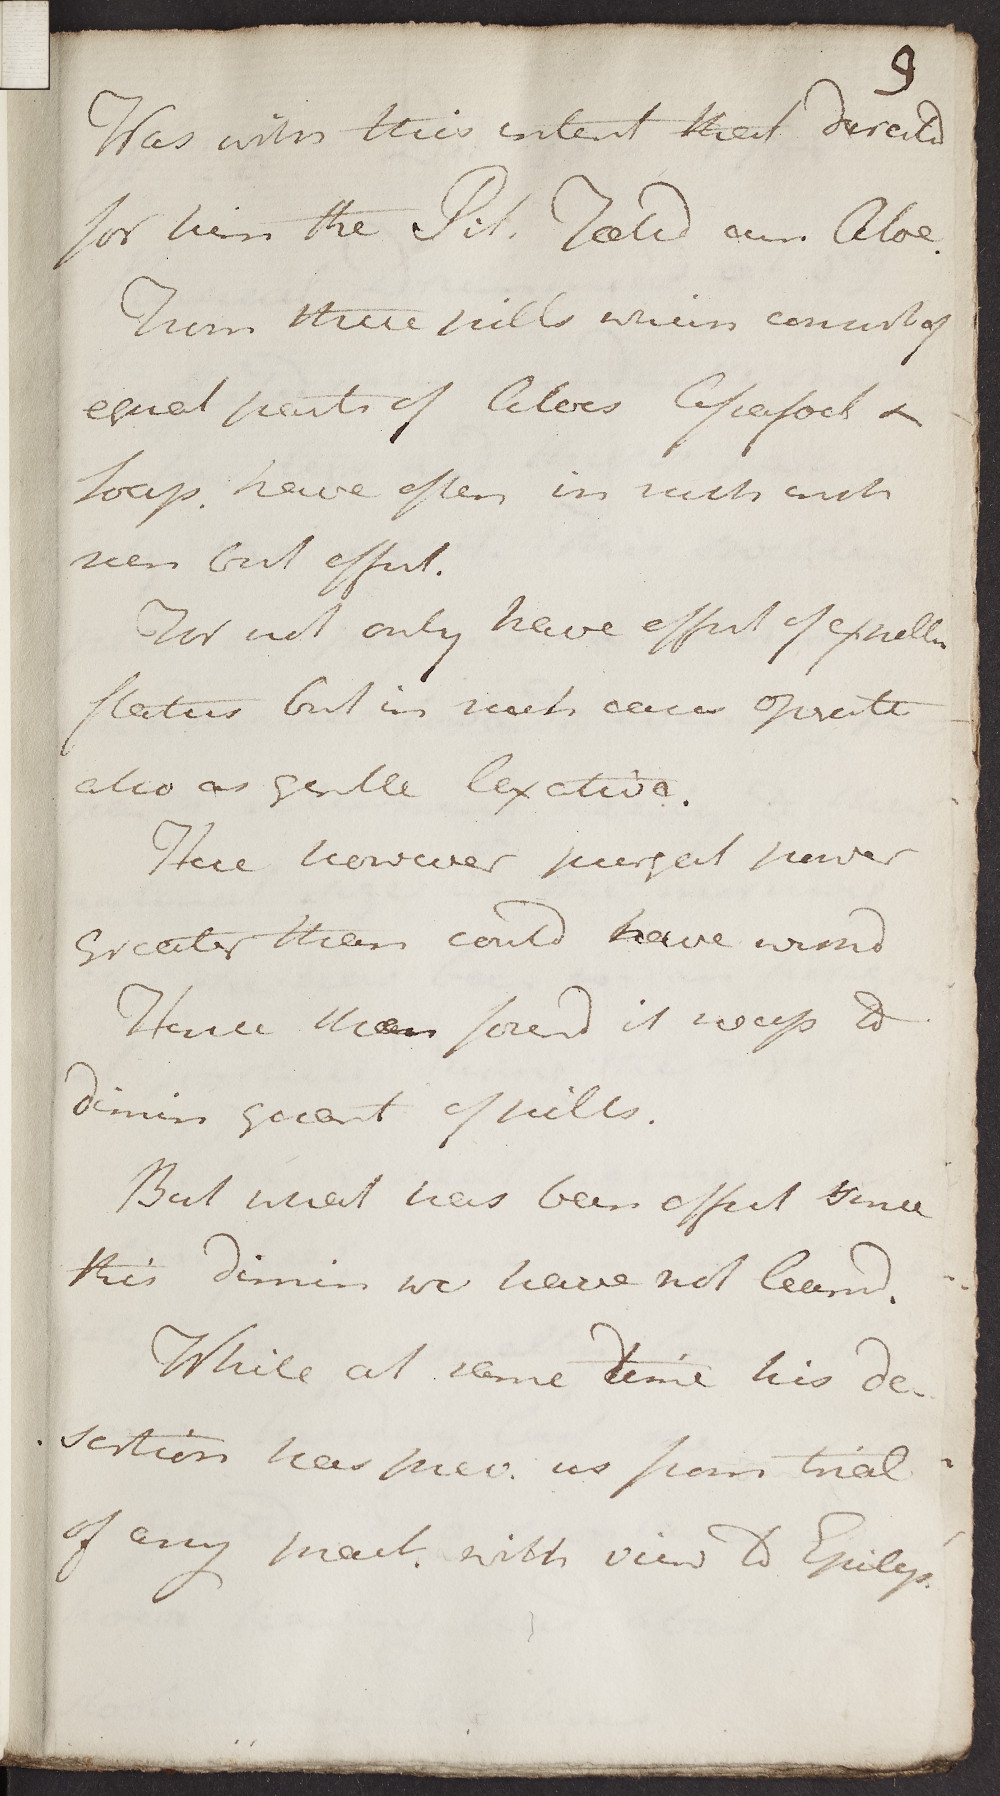 9
Was with this intent that directd
for him the Pil. Foetid cum Aloe.
From these pills which consist of
equal parts of Aloes Asafoet &
Soap. have often in such such
seen best effect.
For not only have effect of expellin
flatus but in such cases operate
also as gentle Lexative.
Here however purgat power
greater than could have wishd
Hence then found it necess to
dimin quant of pills.
But what has been effect since
this dimin we have not learnd.
While at same time his de-
sertion has prev. us from trial
of any pract. with view to Epileps.